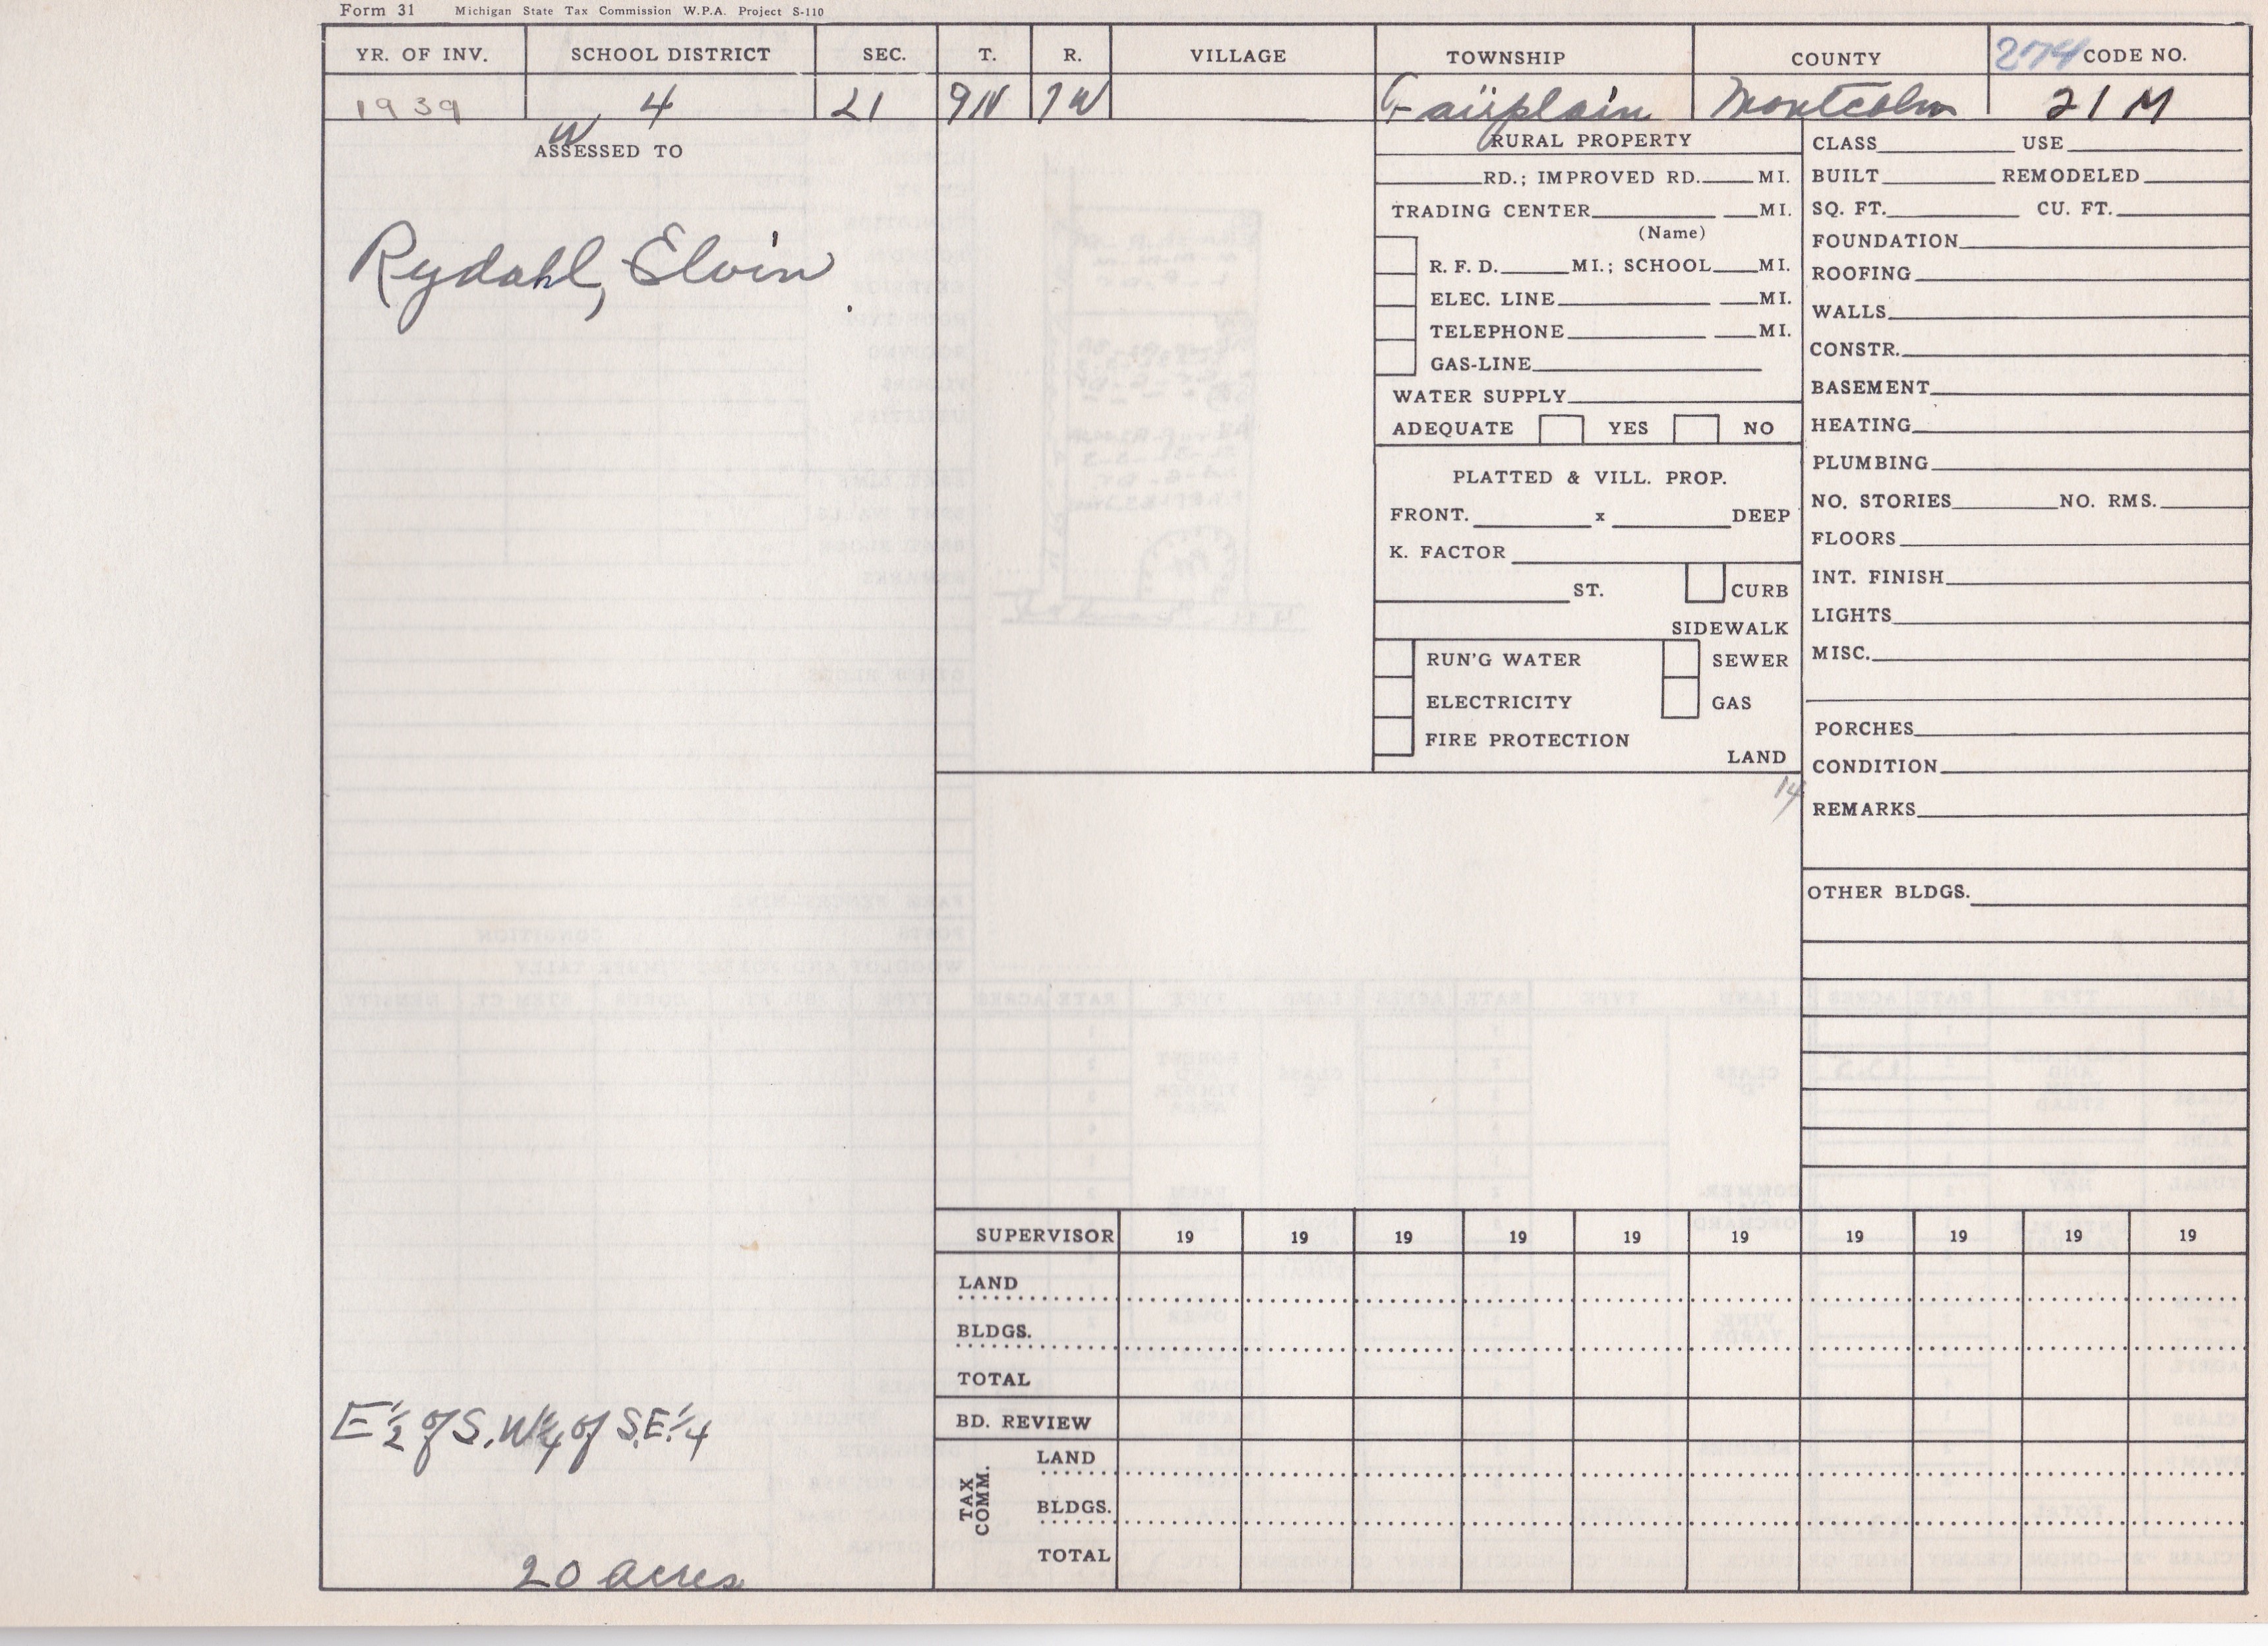 Form 31 Michigan State Tax Commission W.P.A. Project S-110
YR. OF INV. SCHOOL DISTRICT SEC. T. R. VILLAGE TOWNSHIP COUNTY 274 CODE NO.
1939 4 21 9N 7W Fairplain Montcalm 21 M
W
ASSESSED TO
Rydahl, Elvin
E 1/2 of S.W 1/4 of S.E. 1/4
20 acres
RURAL PROPERTY
RD.; IMPROVED RD. MI.
TRADING CENTER MI.
(Name)
R. F. D. MI.; SCHOOL MI.
ELEC. LINE MI.
TELEPHONE MI.
GAS-LINE
WATER SUPPLY
ADEQUATE YES NO
PLATTED & VILL. PROP.
FRONT. x DEEP
K. FACTOR
ST. CURB
SIDEWALK
RUN'G WATER SEWER
ELECTRICITY GAS
FIRE PROTECTION
LAND
14
CLASS USE
BUILT REMODELED
SQ. FT. CU. FT.
FOUNDATION
ROOFING
WALLS
CONSTR.
BASEMENT
HEATING
PLUMBING
NO. STORIES NO. RMS.
FLOORS
INT. FINISH
LIGHTS
MISC.
PORCHES
CONDITION
REMARKS
OTHER BLDGS.
SUPERVISOR 19 19 19 19 19 19 19 19 19 19
LAND
BLDGS.
TOTAL
BD. REVIEW
TAX COMM.
LAND
BLDGS.
TOTAL